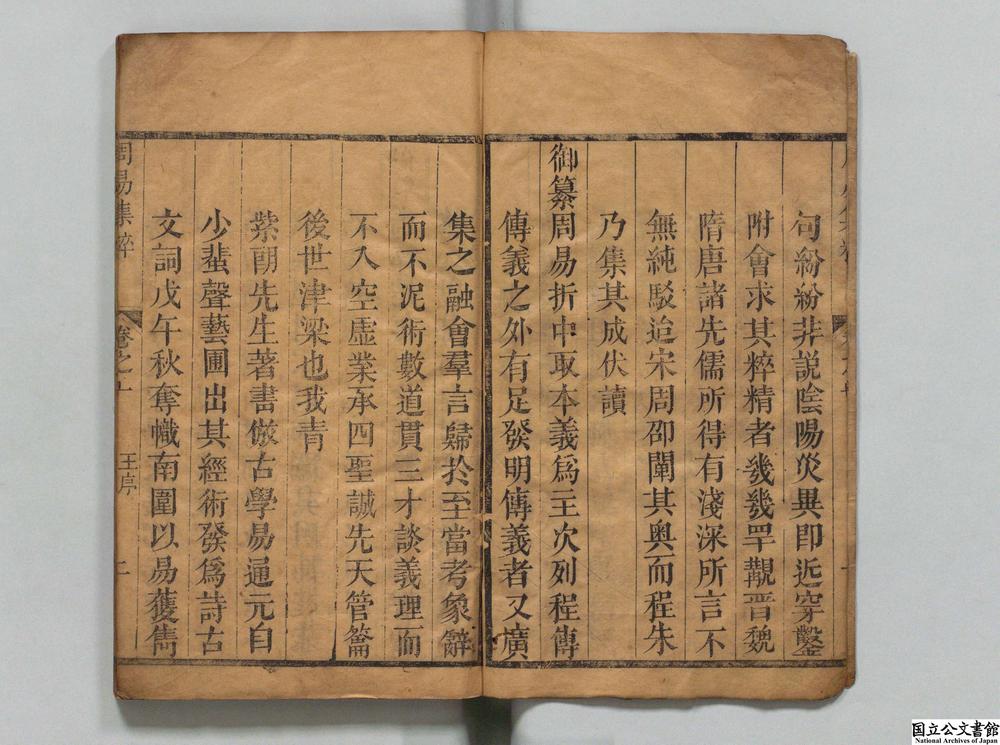 句紛紛非説陰陽災異即近穿鑿
附會求其粹精者幾幾罕覯晋魏
隋唐諸先儒所得有淺深所言不
無純駁迨宋周邵闡其奥而程朱
乃集其成伏讀
御纂周易折中取本義爲主次列程傳
傳義之外有足發明傳義者又廣
集之融會羣言歸於至當考象辭
而不泥術數道貫三才談義理而
不入空虛業承四聖誠先天管籥
後世津梁也我青
紫朝先生著書倣古學易通元自
少蜚聲藝圃出其經術發爲詩古
文詞戊午秋奪幟南圍以易獲雋
周易集粹
卷之上
王序
二
国立公文書館
National Archives of Japan